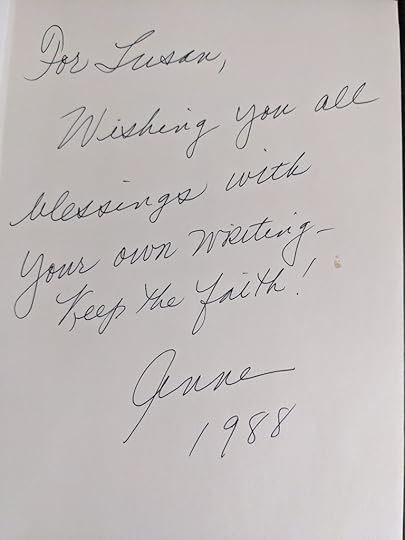 For Susan,
Wishing you all
blessings with
your own writing-
Keep the faith!
Anne
1988